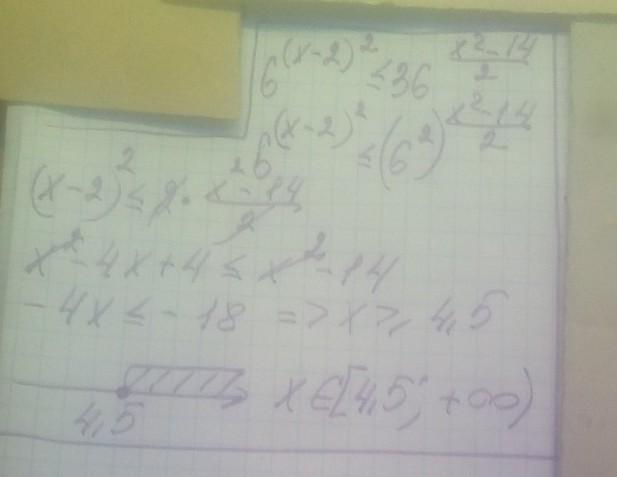 6^{(x-2)^2} ≤ 36^{\frac{x^2-14}{2}}
6^{(x-2)^2} ≤ (6^2)^{\frac{x^2-14}{2}}
(x-2)^2 ≤ 2 · \frac{x^2-14}{2}
x^2 - 4x + 4 ≤ x^2 - 14
-4x ≤ -18 => x ≥ 4,5
4,5 x ∈ [4,5; +∞)